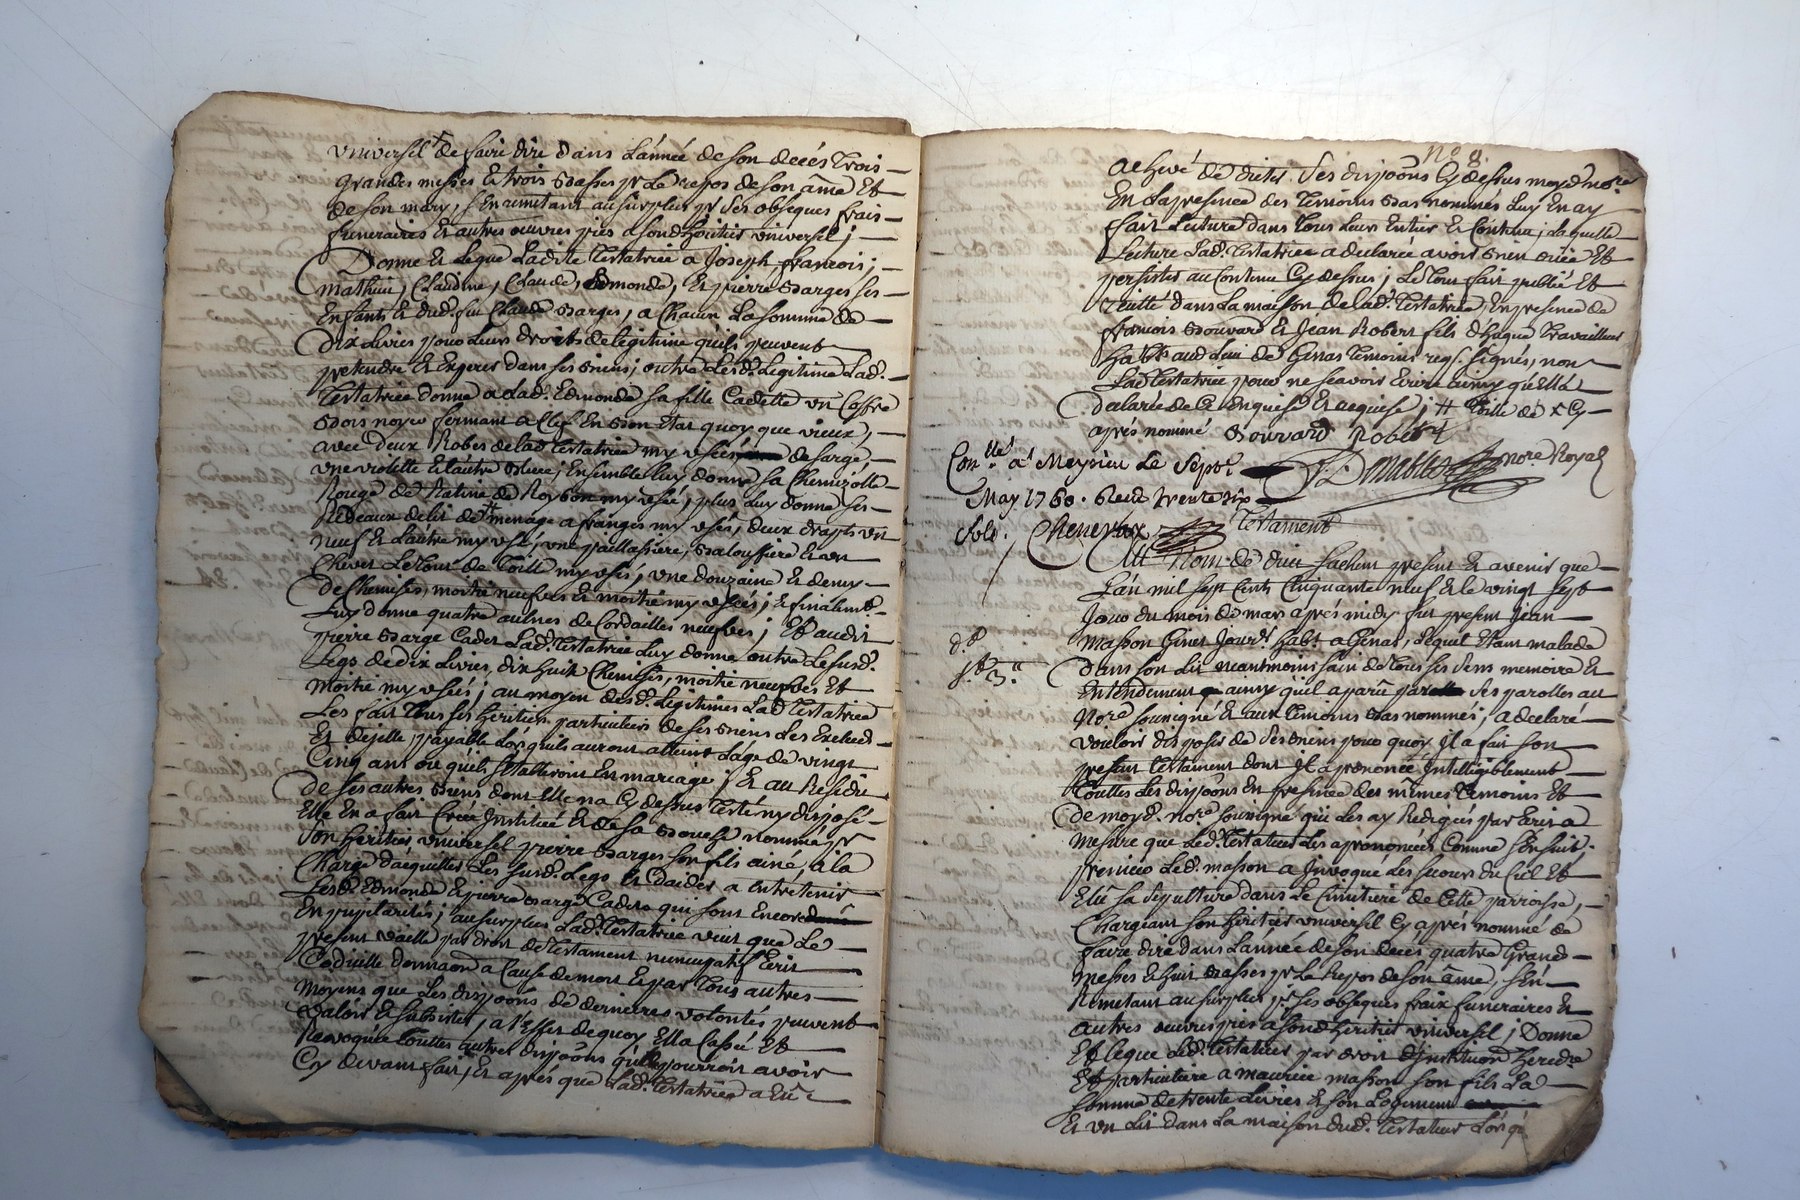 universel de faire dire dans l'année de son decés trois
grandes messes et trois basses pr le repos de son âme et
de son mary, s'en remetant au surplus pr ses obseques frais
funeraires et autres œuvres pies a sond. heritier universel;
Donne et legue ladite testatrice a Joseph, francois;
mathieu, Claudine, Claude, Edmonde, et pierre Barges ses
enfants et dud. feu Claude Barges, a chacun la somme de
dix livres pour leurs droits de legitime qu'ils peuvent
pretendre et experer dans ses biens; outre lesd. legitime lad.
testatrice donne a lad. Edmonde sa fille Cadette un Coffre
bois noyer fermant a clef en bon état quoy que vieux,
avec deux Robes de lad. testatrice my usées de sarge
une violette et l'autre bleue; ensemble luy donne sa chemizolle
Rouge de Ratine de Roybon my usée, plus luy donne ses
Rideaux de lit de menage a franges my usés, deux draps un
neuf et l'autre my usé, une paillassiere, baloussiere et un
chevet le tout de toille my usés, une douzaine et demy
de chemises, moitié neufves et moitié my usées; et finalemt.
luy donne quatre aulnes de Cordailles neufves; Et audit
pierre Barge Cadet lad. testatrice luy donne outre le susd.
legs de dix livres, dix huit chemises, moitié neufves et
moitié my usées; au moyen desd. legitimes lad. testatrice
les fait tous ses heritiers particuliers de ses biens les exclud
et dejette, payable lorsquils auront atteint l'âge de vingt
Cinq ans ou qu'ils s'établiront en mariage; Et au Residu
de ses autres biens dont elle n'a cy dessus testé ny disposé
elle en a fait Créé institué et de sa bouche nommé pr
son heritier universel pierre Barges son fils ainé, a la
charge d'acquitter les susd. legs et d'aider a entretenir
lesd. Edmonde et pierre Barge Cadets qui sont encore
en pupilarité; au surplus lad. testatrice veut que le
present vaille par droit de testament nuncupatif Ecrit
Codicille donnaon a cause de mort et par tous autres
moyens que les dispoons de dernieres volontés peuvent
valoir et subsister, a l'effet de quoy Ella Cassé et
Revoqué touttes autres dispoons qu'elle pourroit avoir
Cy devant fait; Et aprés que lad. testatrice a eu
No 8.
achevé de dicter ses dispoons Cy dessus moyd. nore
en la presence des temoins bas nommés luy en ay
fait lecture dans tous leurs entier et contenu, laquelle
lecture lad. testatrice a declarée avoir bien ouïe et
persister au contenu Cy dessus; le tout fait publié et
recitté dans la maison de lad. testatrice, en presence de
francois Bouvard et Jean Robert fils d'hugue travailleurs
habts aud. lieu de Genas temoins reqs. signés, non
lad. testatrice pour ne scavoir écrire ainsy qu'ella
declarée de ce enquise et requise;
aprés nommé Bouvard Robert
Conllé a Meyzieu le Sept.
May 1760. Recu trente six
sols. Chenevaz
Donables nore Royal
Testament
Au Nom de dieu sachent present et avenir que
l'an mil sept Cents Cinquante neuf et le vingt sept
Jour du mois de mars aprés midy fut present Jean
Masson Genet Jourr habt a Genas, lequel étant malade
dans son lit neantmoins sain de tous ses sens memoire et
entendement ainsy qu'il a parû par ses parolles au
Nore soussigné et aux temoins bas nommés, a declaré
vouloir disposer de ses biens pour quoy il a fait son
present testament dont il a prononcé intelligiblement
touttes les dispoons en presence des mêmes temoins et
de moyd. nore soussigné qui les ay Redigées par écrit a
mesure que led. testateur les a prononcées Comme s'ensuit.
premier led. masson a invoqué les secours du Ciel et
elû sa sepulture dans le Cimitiere de cette parroisse,
Chargeant son heritier universel cy aprés nommé de
faire dire dans l'année de son decés quatre Grand
messes et huit basses pr le Repos de son âme, s'en
Remetant au surplus pr ses obseques fraix funeraires et
autres œuvres pies a sond. heritier universel; Donne
Et legue led. testateur par droit d'instituon heredre
Et particuliere a maurice masson son fils la
somme de trente livres et son logement
Et un lit dans la maison dud. testateur